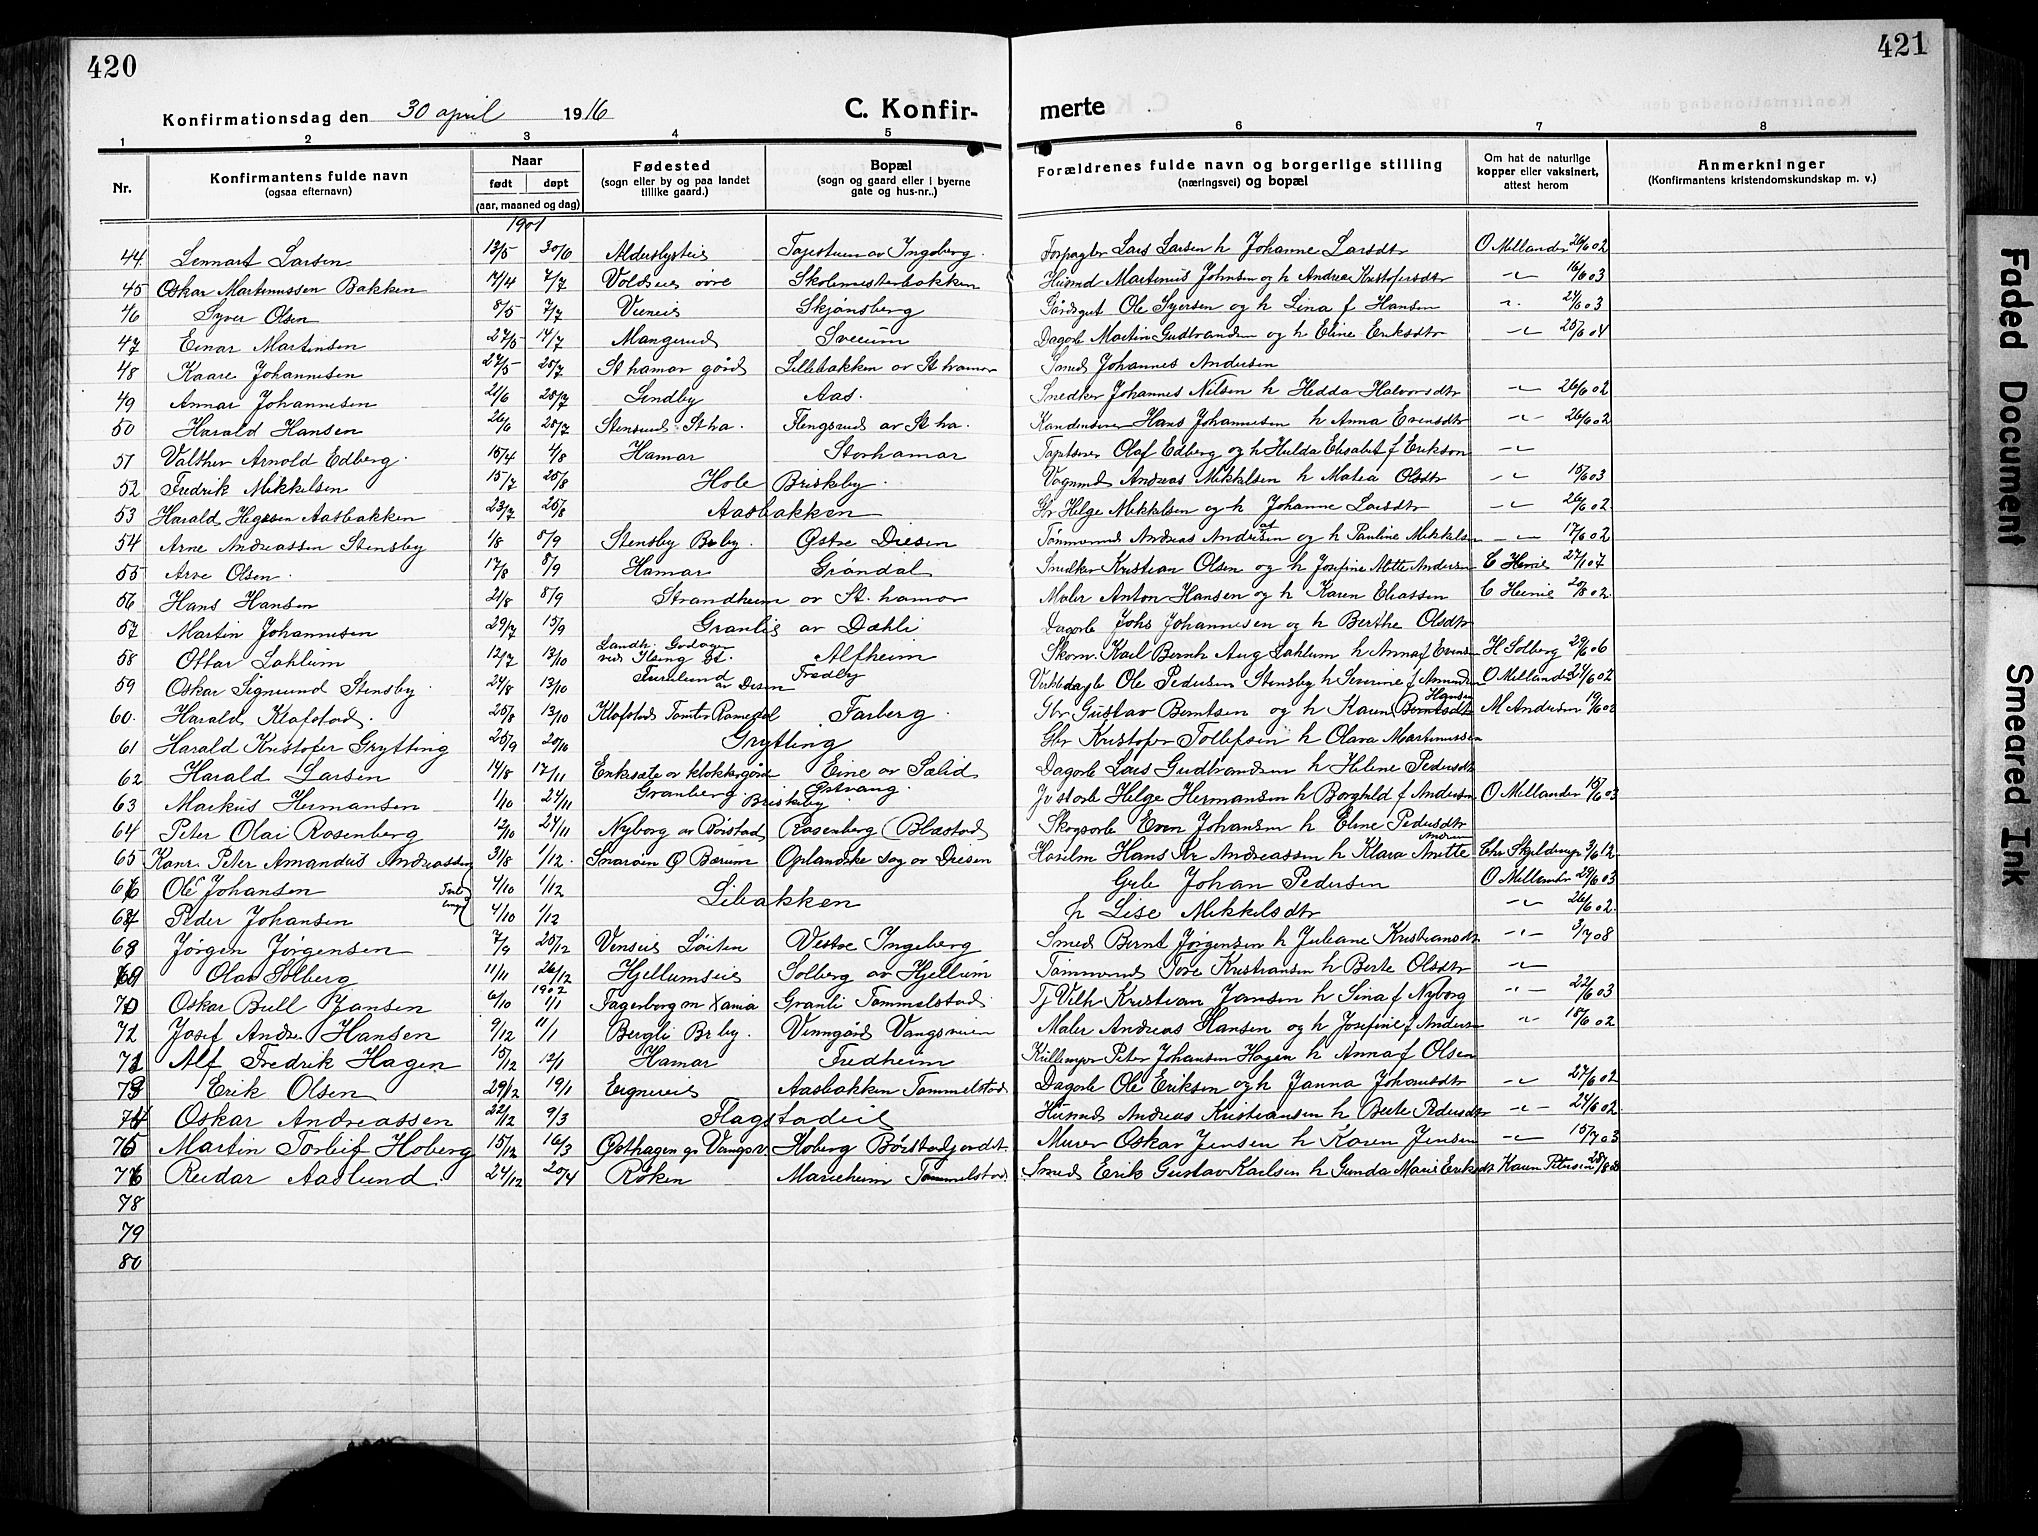 420
421
Konfirmationsdag den 30 april 1916
C. Konfir-
merte
1 2 3 4 5 6 7 8
Nr.
Konfirmantens fulde navn
(ogsaa efternavn)
Naar
født døpt
(aar, maaned og dag)
Fødested
(sogn eller by og paa landet
tillike gaard.)
Bopæl
(sogn og gaard eller i byerne
gate og hus-nr..)
Forældrenes fulde navn og borgerlige stilling
(næringsvei) og bopæl
Om hat de naturlige
kopper eller vaksinert,
attest herom
Anmerkninger
(Konfirmantens kristendomskundskap m. v.)
1901
44. Lennart Larsen 13/5 30/6 Tajestuen av Ingeberg. Forpagter Lars Larsen h Johanne Larsdtr O Millander 26/6 02
45 Oskar Martinussen Bakken 17/4 7/7 Voldseie øvre Skolemesterbakken Husmd Martinus Johnsen og h Andrea Kristofersdtr -"- 16/6 03
46 Syver Olsen 8/5 7/7 Skjønsberg Gårdsgut Ole Syversen og h Lina f Hansen -"- 24/6 03
47 Einar Martinsen 27/5 14/7 Mangerud Sveum Dagarb Martin Gudbrandsen og h Eline Eriksdtr -"- 25/6 04
48 Kaare Johannesen 24/5 28/7 St hamar gård Lillebakken av St hamar Smed Johannes Andersen
49 Annar Johannesen 21/6 28/7 Lindby Aas. Snedker Johannes Nilsen h Hedda Halvorsdtr -"- 26/6 02
50 Harald Hansen 26/6 28/7 Stensrud St ha. Flengsrud av St ha. Hans Johannesen h Anna Evensdtr -"- 26/6 02
51 Valther Arnold Edberg. 15/4 4/8 Hamar Storhamar Tapetserer Olaf Edberg og h Hulda Elisabet f Erikson -"-
52 Fredrik Mikkelsen 15/7 25/8 Hole Briskeby. Vognmd Andreas Mikkelsen h Matea Olsdtr -"- 15/6 03
53 Harald Helgesen Aasbakken 23/7 25/8 Aasbakken Gbr Helge Mikkelsen og h Johanne Larsdtr -"- 26/6 02
54 Arne Andreassen Stensby 1/8 8/9 Stensby Br.by. Østre Disen Tømmermd Andreas Andersen og h Pauline Mikkelsen -"- 17/6 02
55 Arve Olsen. 17/8 8/9 Hamar Grøndal Snedker Kristian Olsen og h Josefine Mette Andersen C Heinie 27/1 04
56 Hans Hansen 21/8 8/9 Strandheim av St. hamar Maler Anton Hansen og h Karen Eliassen C Heinie 20/8 02.
57 Martin Johannesen 29/7 15/9 Granlis av Dæhli Dagarb Johs Johannesen og h Berthe Olsdtr
58 Ottar Lahlum 12/7 13/10 Landh. ved Ilseng St. Alfheim Skom. Karl Bernh Aug Lahlum h Anna f Evensen H Solberg 29/6 06
59 Oskar Sigmund Stensby. 24/8 13/10 Furulund av Disen Fredly Ole Pedersen Stensby h f Amundsen O Millander 24/6 02
60. Harald Klafstad. 25/8 13/10 Klafstad Farberg. Gbr Gustav Berntsen og h Karen Berntsdtr Hansen M Andersen 19/6 02
61 Harald Kristofer Grytting 25/9 20/10 Grytting Gbr Kristofer Tollefsen h Olava Martinussen
62 Harald Larsen 14/8 17/11 av klokkergård Eine av Sælid Dagarb Lars Gudbrandsen h Helene Pedersdtr
63 Markus Hermansen 1/10 24/11 Granberg. Briskeby Østvang. Helge Hermansen h Borghild f Andersen O Millander 15/6 03
64 Peter Olai Rosenberg 12/10 24/11 Nyborg av Børstad Rosenberg (Blæstad) Skogsarb Even Johansen h Eline Pedersdtr
65 Kanr. Peter Amandus Andreassen 31/8 1/12. Snarøen Ø Bærum Oplandske sag av Disen Hans Kr Andreassen h Klara Anette Andersen Chr Skjelderup 3/6 12.
66 Ole Johansen 4/10 1/12 Libakken Gbr Johan Pedersen O Millander 29/6 03
67 Peder Johansen 4/10 1/12 h Lise Mikkelsdtr -"- 26/6 02.
68 Jørgen Jørgensen 7/9 25/12 Vinseie Løiten Vestre Ingeberg Smed Bernt Jørgensen h Juliane Kristiansdtr -"- 3/7 08
69 Olav Solberg 11/11 26/12 Hjellumseie Solberg av Hjellum Tømmermd Tore Kristiansen h Berte Olsdtr -"-
1902
70 Oskar Bull Jansen 6/10 1/1 Fagerborg m Xania Granli Tommelstad. Tj Vilh Kristian Jansen h Lina f Nyborg -"- 22/6 03
71 Josef Andr. Hansen 9/12 11/1 Bergli Br by. Vinngård Vangsveien Maler Andreas Hansen og h Josefine f Andersen -"- 18/6 02
72 Alf Fredrik Hagen 15/12 12/1 Hamar Fredheim Peter Johansen Hagen h Anna f Olsen
73 Erik Olsen 29/12 19/1 Aasbakken Tommelstad Dagarb Ole Eriksen og h Janna Johansdtr -"- 27/6 02
74 Oskar Andreassen 22/12 9/3 Flagstadeie Husmd Andreas Kristiansen h Berte Pedersdtr -"- 24/6 02.
75 Martin Torleif Hoberg 15/12 16/3 Østhagen gr Vangsv. Hoberg Børstadjordet Murer Oskar Jensen h Karen Jensen -"- 15/7 03
76 Reidar Aaslund. 24/12 20/4 Røken Marieheim Tommelstad Smed Erik Gustav Karlsen h Gunda Marie Eriksdtr Karen Petersen
78
79
80
Faded Document
Smeared Ink